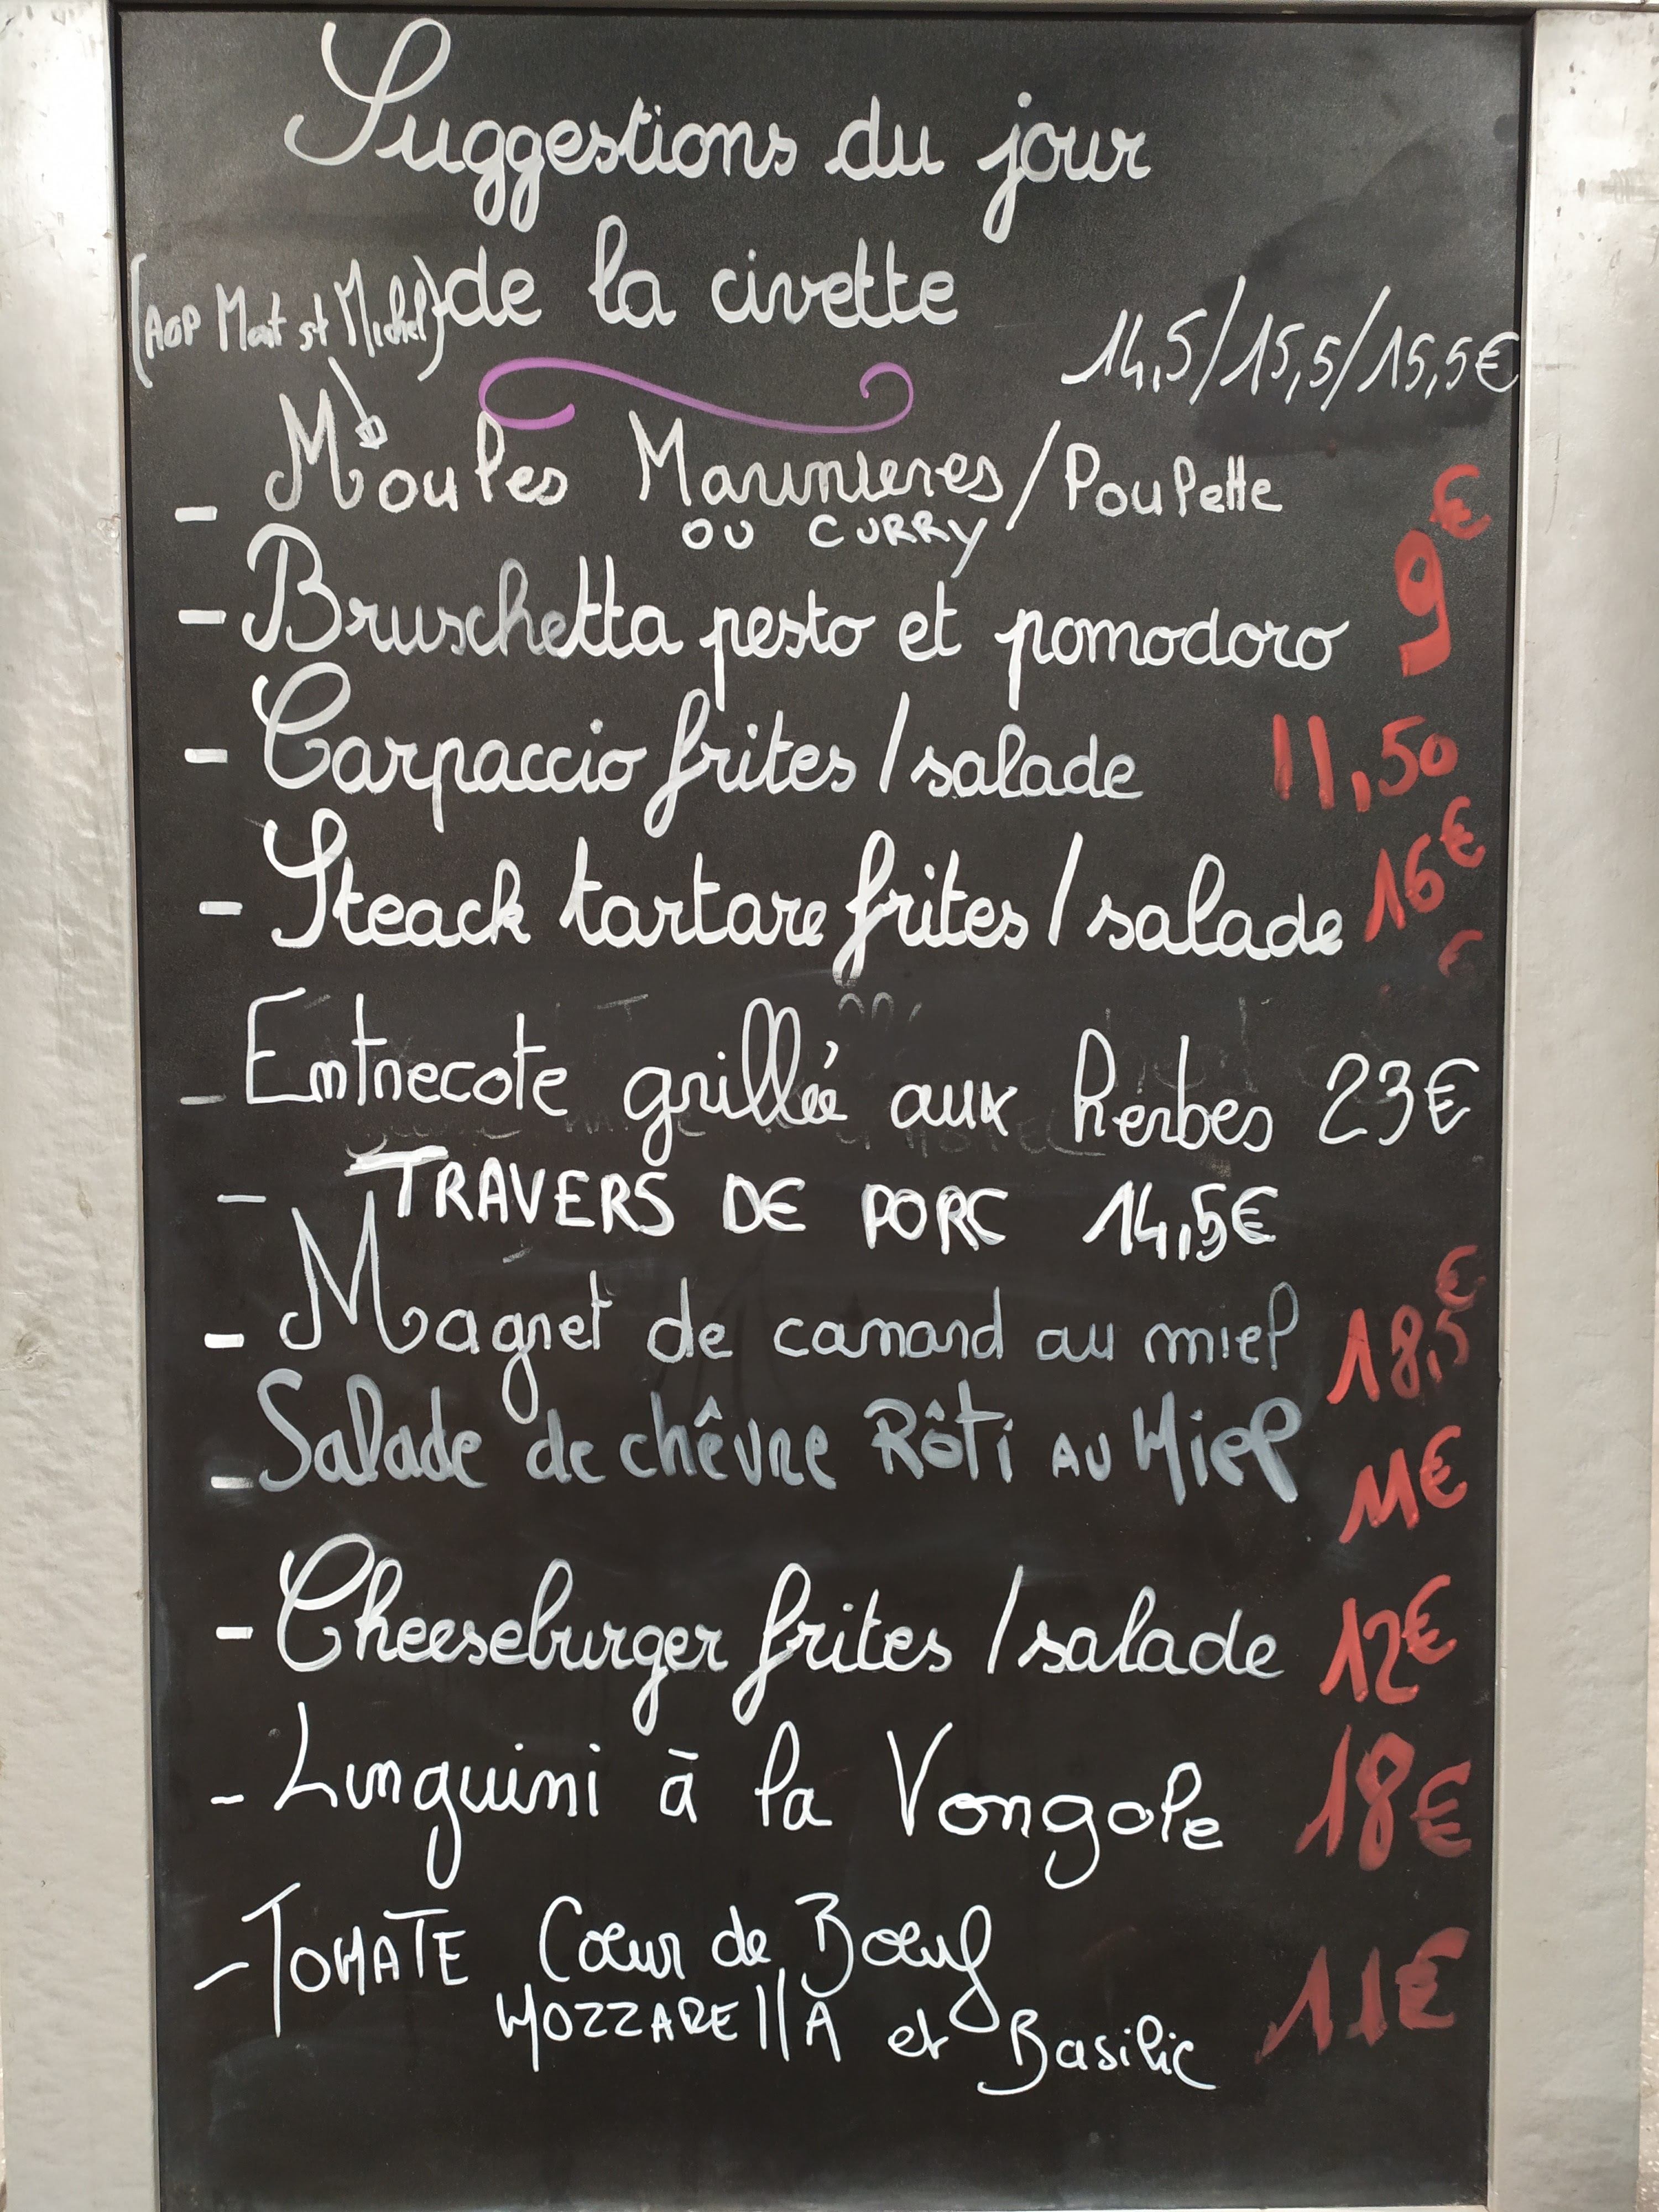 Suggestions du jour
de la civette
(AOP Mont st Michel)
14,5/15,5/15,5€
- Moules Marinieres/Poulette
ou CURRY
- Bruschetta pesto et pomodoro 9€
- Carpaccio frites / salade 11,50
- Steack tartare frites / salade 16€
€
- Entrecote grillée aux herbes 23€
- TRAVERS DE PORC 14,5€
- Magret de canard au miel 18,5€
- Salade de chêvre Rôti AU Miel 11€
- Cheeseburger frites / salade 12€
- Linguini à la Vongole 18€
- TOMATE Cœur de Bœuf
MOZZARELLA et Basilic 11€